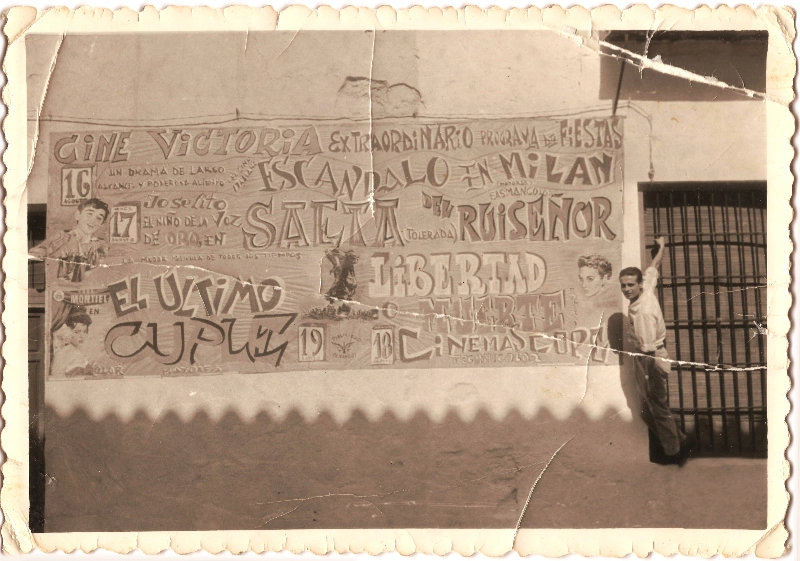 CINE VICTORIA EXTRAORDINARIO PROGRAMA DE FIESTAS
16
AGOSTO
UN DRAMA DE LARGO
ALCANCE Y PODEROSO ALIENTO
ESCANDALO EN MILAN
EASTMANCOLOR
17
AGOSTO
Joselito
EL NIÑO DE LA VOZ
DE ORO EN
SAETA DEL RUISEÑOR
(TOLERADA)
LA MEJOR PELICULA DE TODOS LOS TIEMPOS
MONTIEL
EN
EL ULTIMO
CUPLE
COLOR
MAYORES
19
LIBERTAD
O
MUERTE
18
CINEMASCOPE